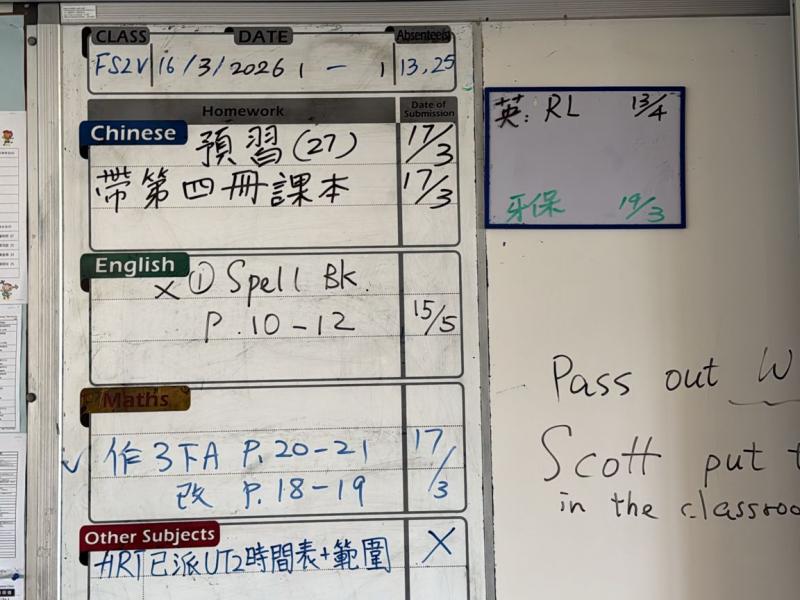 CLASS DATE Absentee(s)
FS2V 16/3/2026 ( — ) 13,25
Homework Date of Submission
Chinese 預習(27) 17/3
帶第四冊課本 17/3
English × ① Spell Bk.
P.10-12 15/5
Maths
✓ 作3下A P.20-21 17/3
改 P.18-19
Other Subjects
HRT已派UT2時間表+範圍 ×
英: RL 13/4
牙保 19/3
Pass out W
Scott put t
in the classroo